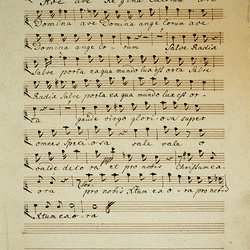 Ave Regina ave
Domina ave Domina angelorum ave
Domina angelo - rum Salve Radix
Salve porta ex qua mundo lux est orta Salve
Radix Salve porta ex qua mundo lux est or-
ta gaude virgo gloriosa super
omnes speciosa vale vale o
valde decora et pro nobis Christum ex-
ora pro nobis Xtum exo - ra pro nobis
Xtum exo - ra